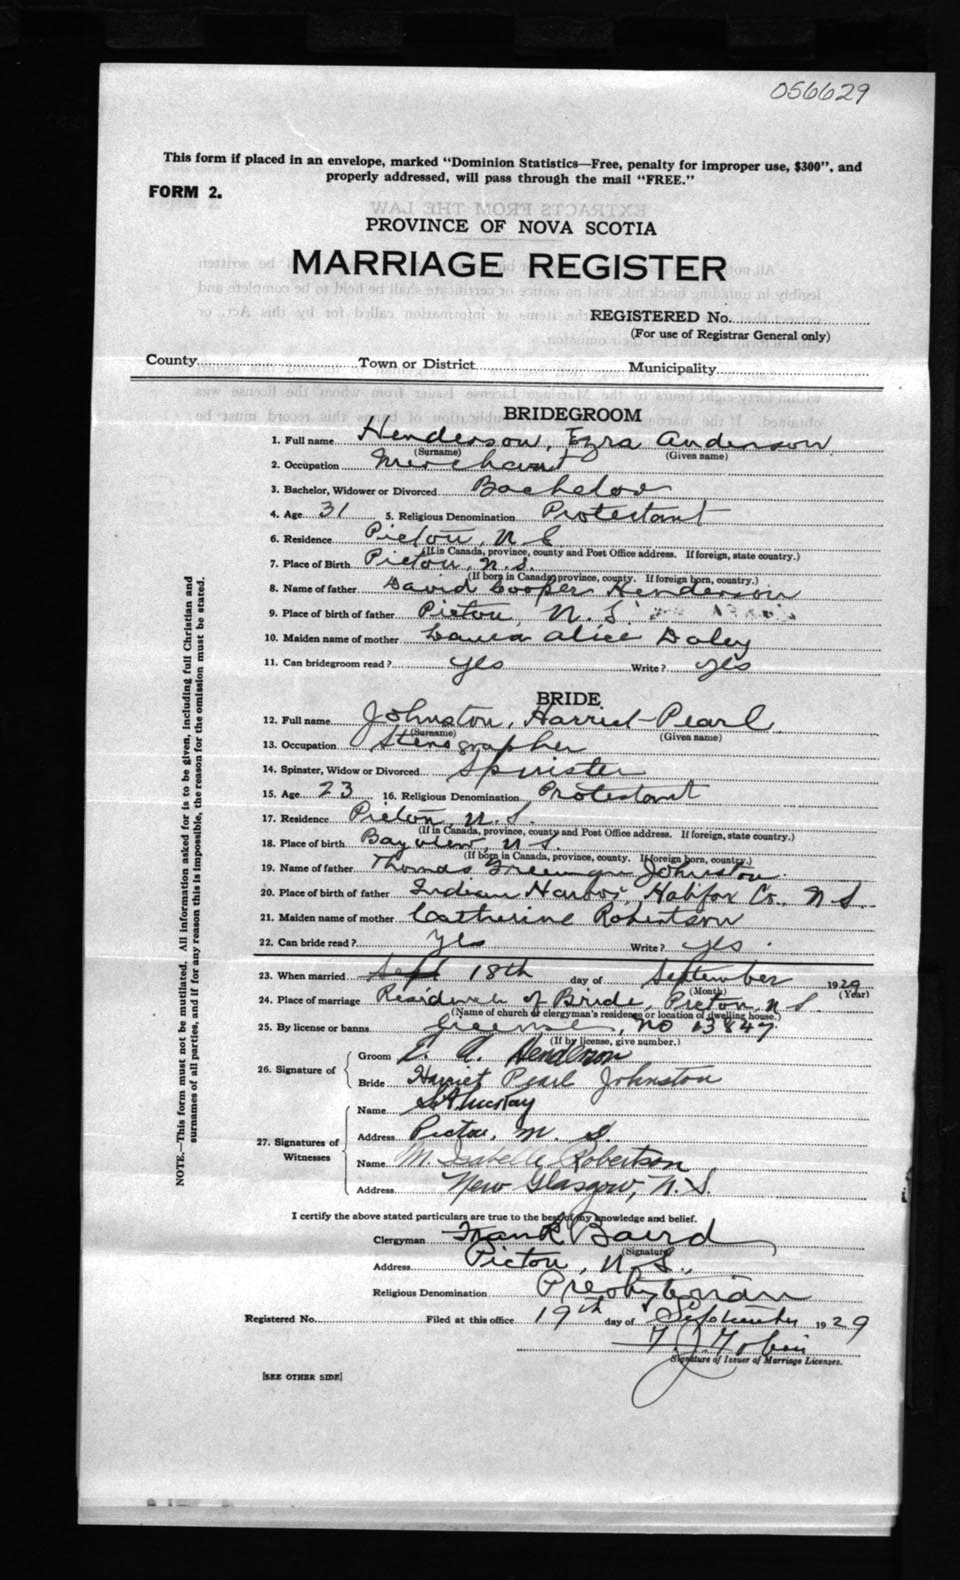 056629
This form if placed in an envelope, marked "Dominion Statistics—Free, penalty for improper use, $300", and
properly addressed, will pass through the mail "FREE."
FORM 2.
PROVINCE OF NOVA SCOTIA
MARRIAGE REGISTER
REGISTERED No.
(For use of Registrar General only)
County Town or District Municipality
BRIDEGROOM
1. Full name Henderson, Ezra Anderson
(Surname) (Given name)
2. Occupation Merchant
3. Bachelor, Widower or Divorced Bachelor
4. Age 31 5. Religious Denomination Protestant
6. Residence Pictou, N.S.
(If in Canada, province, county and Post Office address. If foreign, state country.)
7. Place of Birth Pictou, N.S.
(If born in Canada, province, county. If foreign born, country.)
8. Name of father David Cooper Henderson
9. Place of birth of father Pictou, N.S.
10. Maiden name of mother Laura Alice Daley
11. Can bridegroom read? yes Write? yes
BRIDE
12. Full name Johnston, Harriet Pearl
(Surname) (Given name)
13. Occupation Stenographer
14. Spinster, Widow or Divorced Spinster
15. Age 23 16. Religious Denomination Protestant
17. Residence Pictou, N.S.
(If in Canada, province, county and Post Office address. If foreign, state country.)
18. Place of birth Bayview, N.S.
(If born in Canada, province, county. If foreign born, country.)
19. Name of father Thomas Freeman Johnston
20. Place of birth of father Indian Harbor, Halifax Co., N.S.
21. Maiden name of mother Catherine Robertson
22. Can bride read? yes Write? yes
23. When married Sept 18th day of September 1929
(Month) (Year)
24. Place of marriage Residence of Bride, Pictou, N.S.
(Name of church or clergyman's residence or location of dwelling house.)
25. By license or banns License, No 13847
(If by license, give number.)
26. Signature of Groom E. A. Henderson
Bride Harriet Pearl Johnston
27. Signatures of Witnesses
Name
Address Pictou, N.S.
Name M. Isabelle Robertson
Address New Glasgow, N.S.
I certify the above stated particulars are true to the best of my knowledge and belief.
Clergyman Frank Baird
(Signature)
Address Pictou, N.S.
Religious Denomination Presbyterian
Registered No. Filed at this office 19th day of September 1929
Signature of Issuer of Marriage Licenses.
[SEE OTHER SIDE]
NOTE.—This form must not be mutilated. All information asked for is to be given, including full Christian and
surnames of all parties, and if for any reason this is impossible, the reason for the omission must be stated.